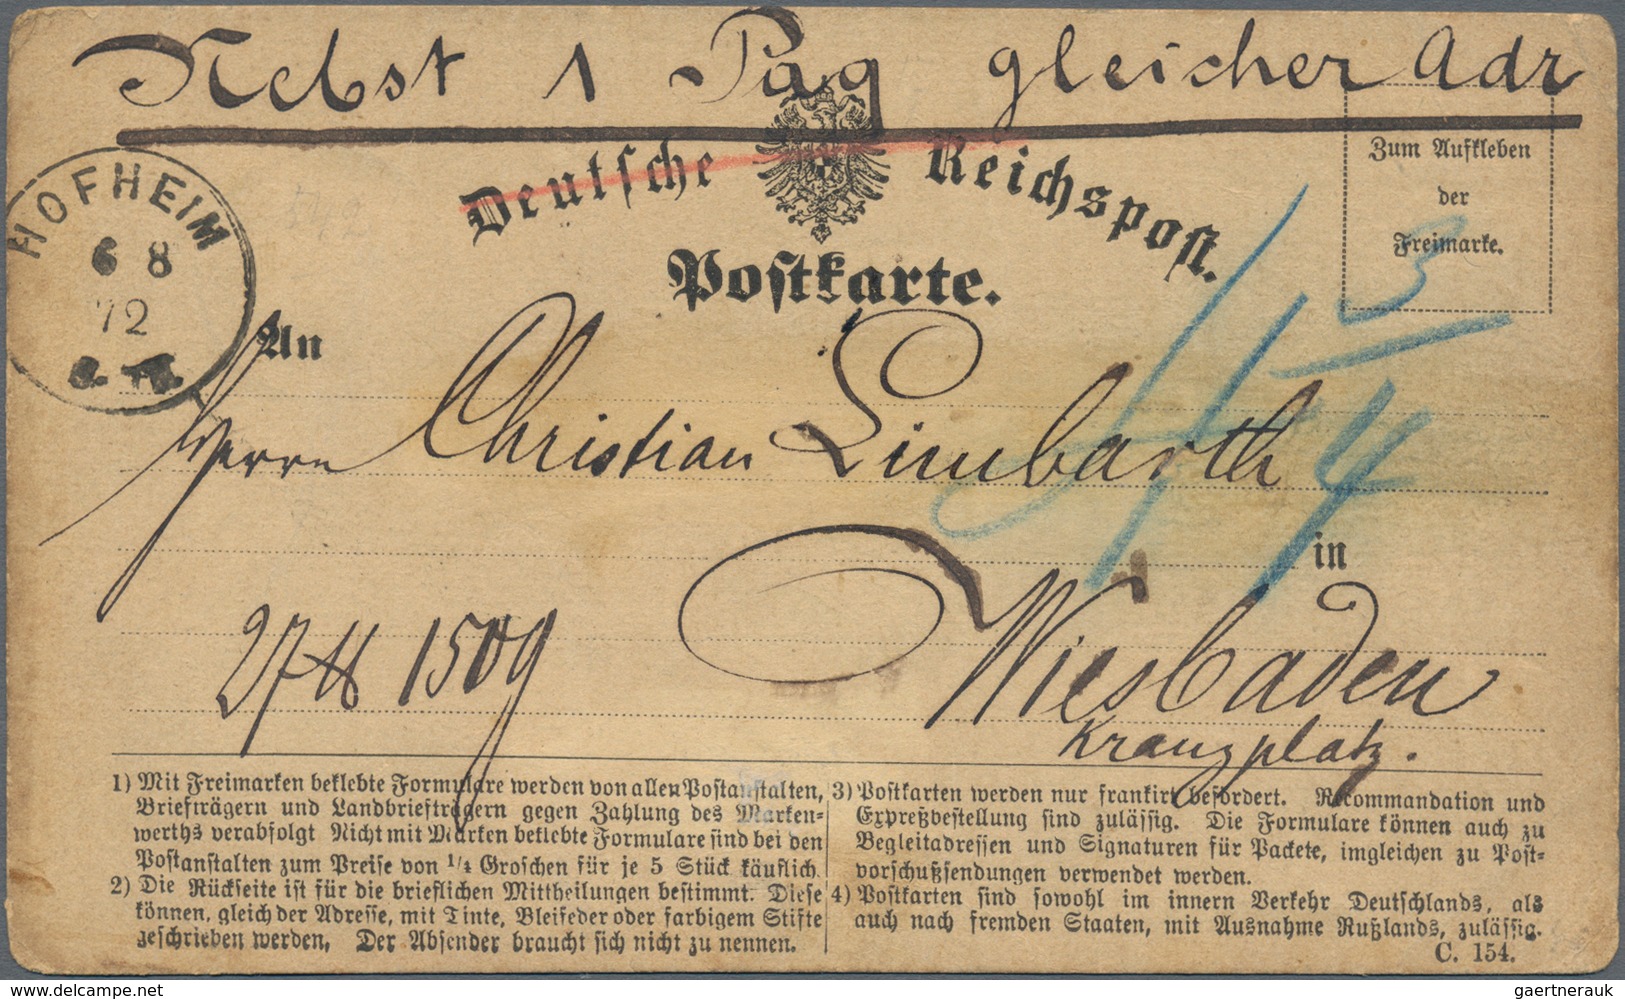 Nebst 1 Pag gleicher Adr
Deutsche Reichspost.
Postkarte.
Zum Aufkleben
der
Freimarke.
HOFHEIM
6 8
72
An
Herrn Christian Limbarth
in
Wiesbaden
Kranzplatz.
27 tt 150g
1) Mit Freimarken beklebte Formulare werden von allen Postanstalten,
Briefträgern und Landbriefträgern gegen Zahlung des Marken=
werths verabfolgt Nicht mit Marken beklebte Formulare sind bei den
Postanstalten zum Preise von 1/4 Groschen für je 5 Stück käuflich.
2) Die Rückseite ist für die brieflichen Mittheilungen bestimmt. Diese
können, gleich der Adresse, mit Tinte, Bleifeder oder farbigem Stifte
geschrieben werden, Der Absender braucht sich nicht zu nennen.
3) Postkarten werden nur frankirt befördert. Recommandation und
Expreßbestellung sind zulässig. Die Formulare können auch zu
Begleitadressen und Signaturen für Packete, imgleichen zu Post=
vorschußsendungen verwendet werden.
4) Postkarten sind sowohl im innern Verkehr Deutschlands, als
auch nach fremden Staaten, mit Ausnahme Rußlands, zulässig.
C. 154.
www.delcampe.net
gaertnerauk